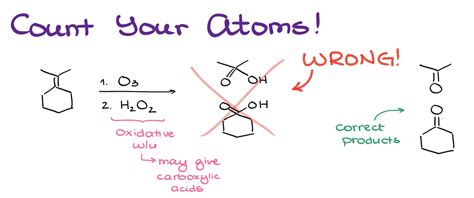 Count Your Atoms!
1. O3
2. H2O2
Oxidative
w/u
may give
carboxylic
acids
O
OH
O
OH
WRONG!
Correct
products
O
O